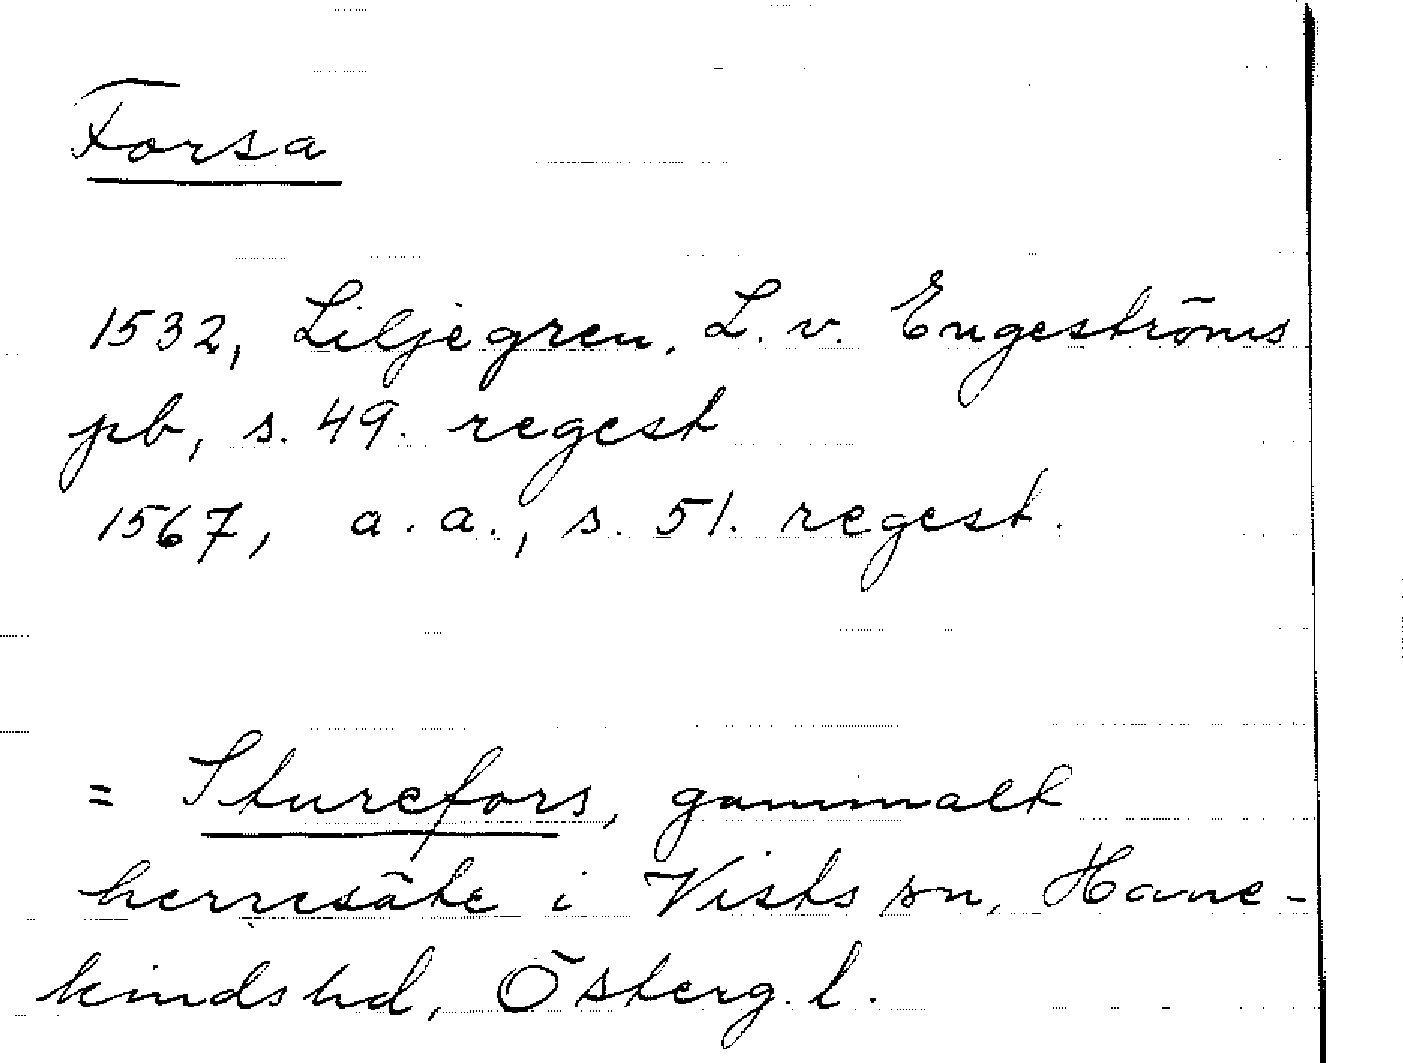 Forsa
1532, Liljegren, L. v. Engeströms
pb, s. 49. regest
1567, a. a., s. 51. regest.
= Sturefors, gammalt
herresäte i Vists sn, Hane-
kinds hd, Österg. l.